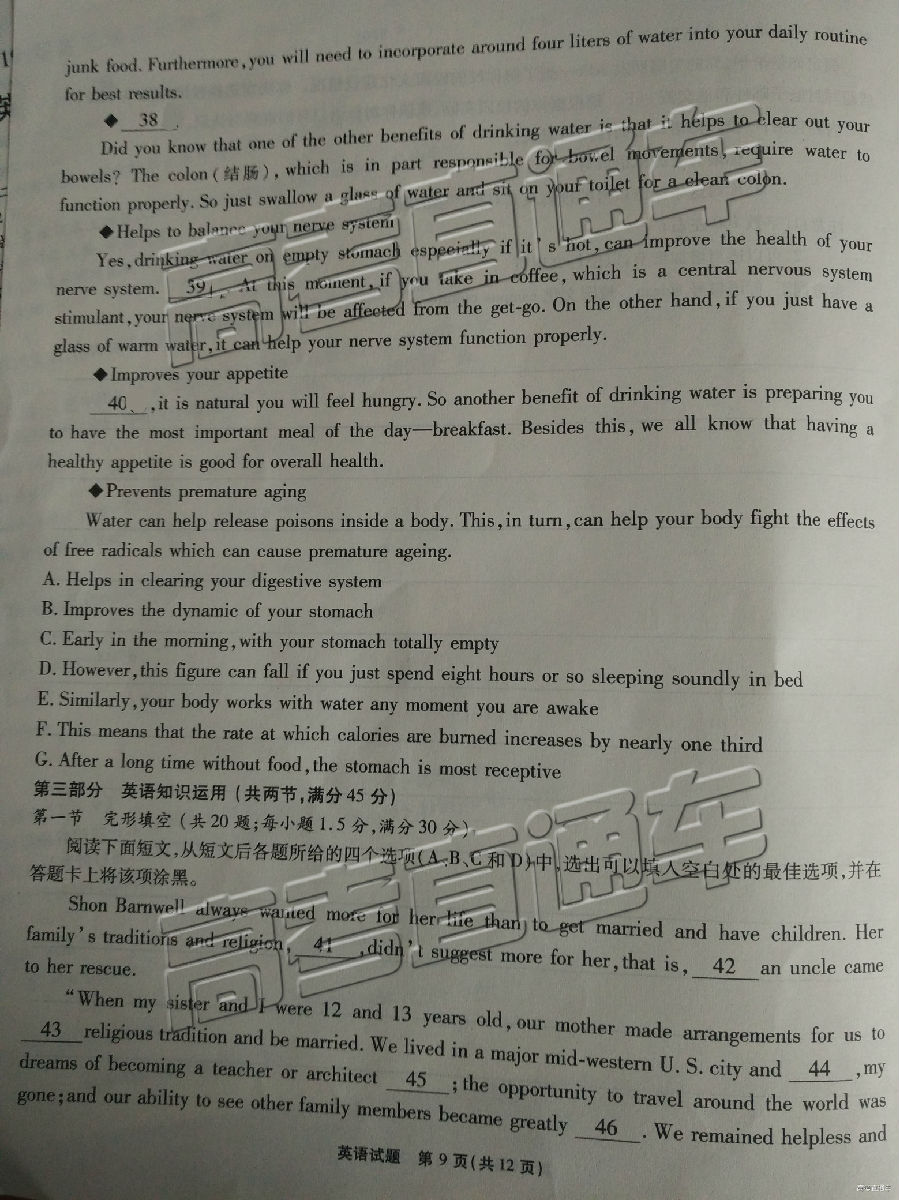 junk food. Furthermore, you will need to incorporate around four liters of water into your daily routine
for best results.
◆ 38 .
Did you know that one of the other benefits of drinking water is that it helps to clear out your
bowels? The colon(结肠), which is in part responsible for bowel movements, require water to
function properly. So just swallow a glass of water and sit on your toilet for a clean colon.
◆Helps to balance your nerve system
Yes, drinking water on empty stomach especially if it's hot, can improve the health of your
nerve system. 39 . At this moment, if you take in coffee, which is a central nervous system
stimulant, your nerve system will be affected from the get-go. On the other hand, if you just have a
glass of warm water, it can help your nerve system function properly.
◆Improves your appetite
40 , it is natural you will feel hungry. So another benefit of drinking water is preparing you
to have the most important meal of the day—breakfast. Besides this, we all know that having a
healthy appetite is good for overall health.
◆Prevents premature aging
Water can help release poisons inside a body. This, in turn, can help your body fight the effects
of free radicals which can cause premature ageing.
A. Helps in clearing your digestive system
B. Improves the dynamic of your stomach
C. Early in the morning, with your stomach totally empty
D. However, this figure can fall if you just spend eight hours or so sleeping soundly in bed
E. Similarly, your body works with water any moment you are awake
F. This means that the rate at which calories are burned increases by nearly one third
G. After a long time without food, the stomach is most receptive
第三部分 英语知识运用(共两节,满分45分)
第一节 完形填空(共20题;每小题1.5分,满分30分)
阅读下面短文,从短文后各题所给的四个选项(A、B、C和D)中,选出可以填入空白处的最佳选项,并在
答题卡上将该项涂黑。
Shon Barnwell always wanted more for her life than to get married and have children. Her
family's traditions and religion, 41 , didn't suggest more for her, that is, 42 an uncle came
to her rescue.
"When my sister and I were 12 and 13 years old, our mother made arrangements for us to
43 religious tradition and be married. We lived in a major mid-western U. S. city and 44 , my
dreams of becoming a teacher or architect 45 ; the opportunity to travel around the world was
gone; and our ability to see other family members became greatly 46 . We remained helpless and
英语试题 第9页(共12页)
高考直通车
高考直通车